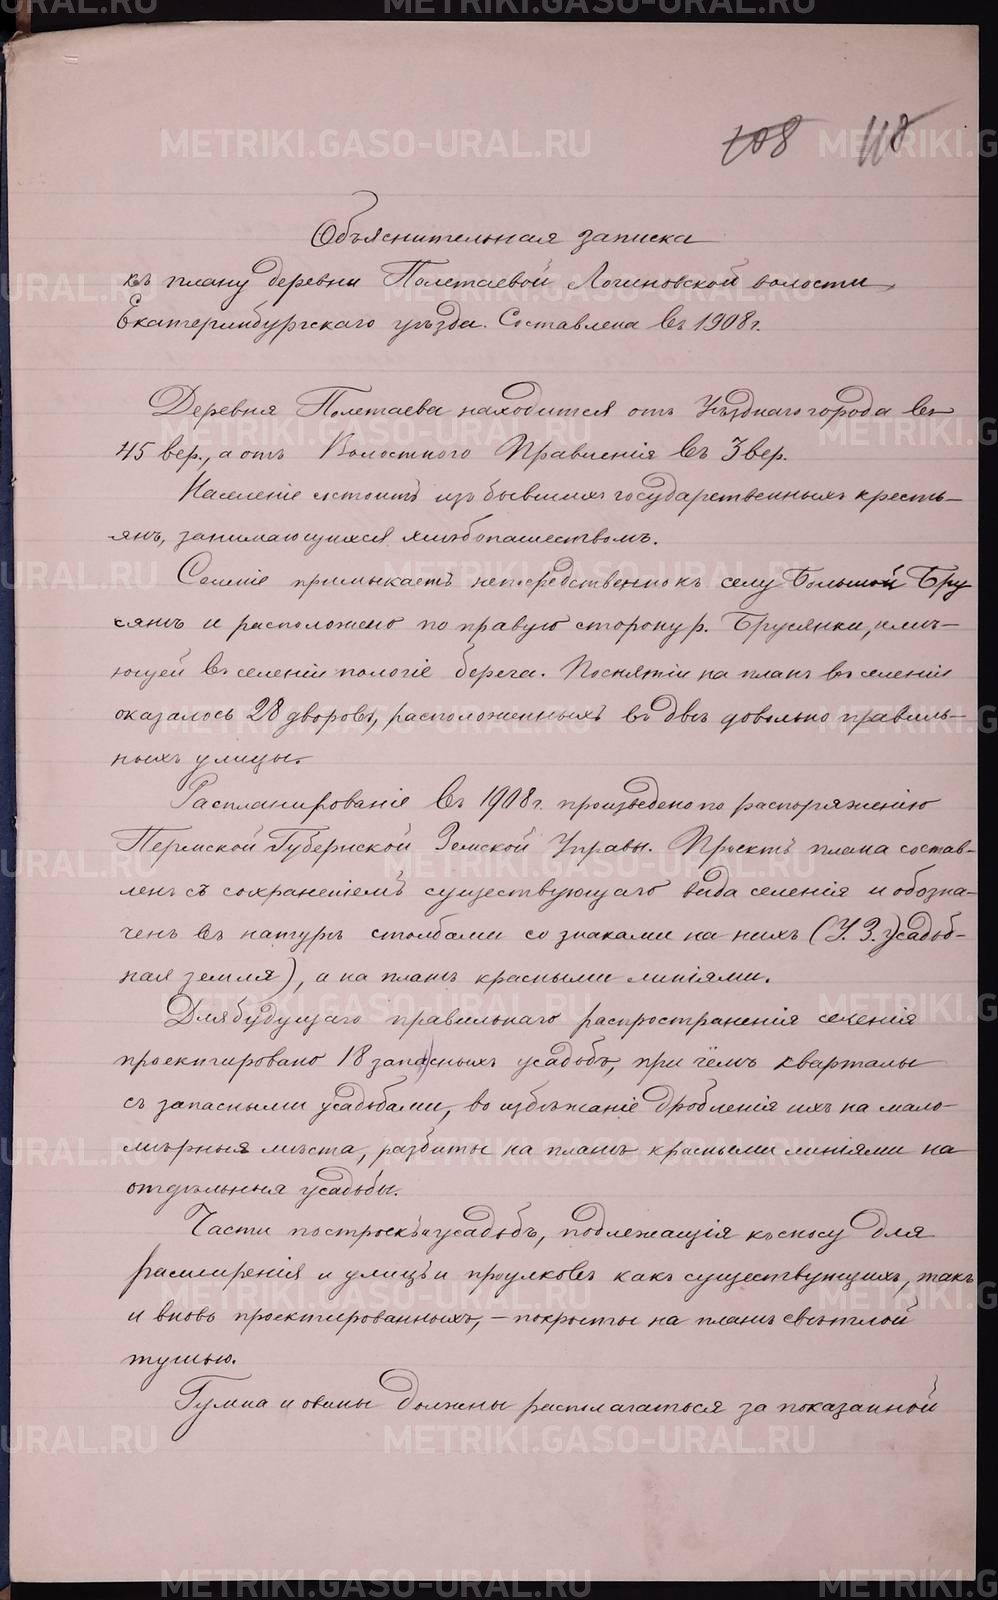 108 118
Объяснительная записка
къ плану деревни Полетаевой Логиновской волости,
Екатеринбургскаго уѣзда. Составлена въ 1908 г.
Деревня Полетаева находится отъ Уѣзднаго города въ
45 вер., а отъ Волостного Правленія въ 3 вер.
Населеніе состоитъ изъ бывшихъ государственныхъ кресть-
янъ, занимающихся хлѣбопашествомъ.
Селеніе примыкаетъ непосредственно къ селу Большой Бру
сянъ и расположено по правую сторону р. Брусянки, имѣ-
ющей въ селеніи пологіе берега. По снятіи на планъ въ селеніи
оказалось 28 дворовъ, расположенныхъ въ двѣ довольно правиль-
ныхъ улицы.
Распланированіе въ 1908 г. произведено по распоряженію
Пермской Губернской Земской Управы. Проектъ плана состав-
ленъ съ сохраненіемъ существующаго вида селенія и обозна-
ченъ въ натурѣ столбами со знаками на нихъ (У. З. Усадьб-
ная земля), а на планѣ красными линіями.
Для будущаго правильнаго распространенія селенія
проектировано 18 запасныхъ усадьбъ, при чёмъ кварталы
съ запасными усадьбами, во избѣжаніе дробленія ихъ на мало-
мѣрныя мѣста, разбиты на планѣ красными линіями на
отдѣльныя усадьбы.
Части построекъ и усадьбъ, подлежащія къ сносу для
расширенія и улицъ и проулковъ какъ существующихъ, такъ
и вновь проектированныхъ, – покрыты на планѣ свѣтлой
тушью.
Гумна и овины должны располагаться за показанной
METRIKI.GASO-URAL.RU